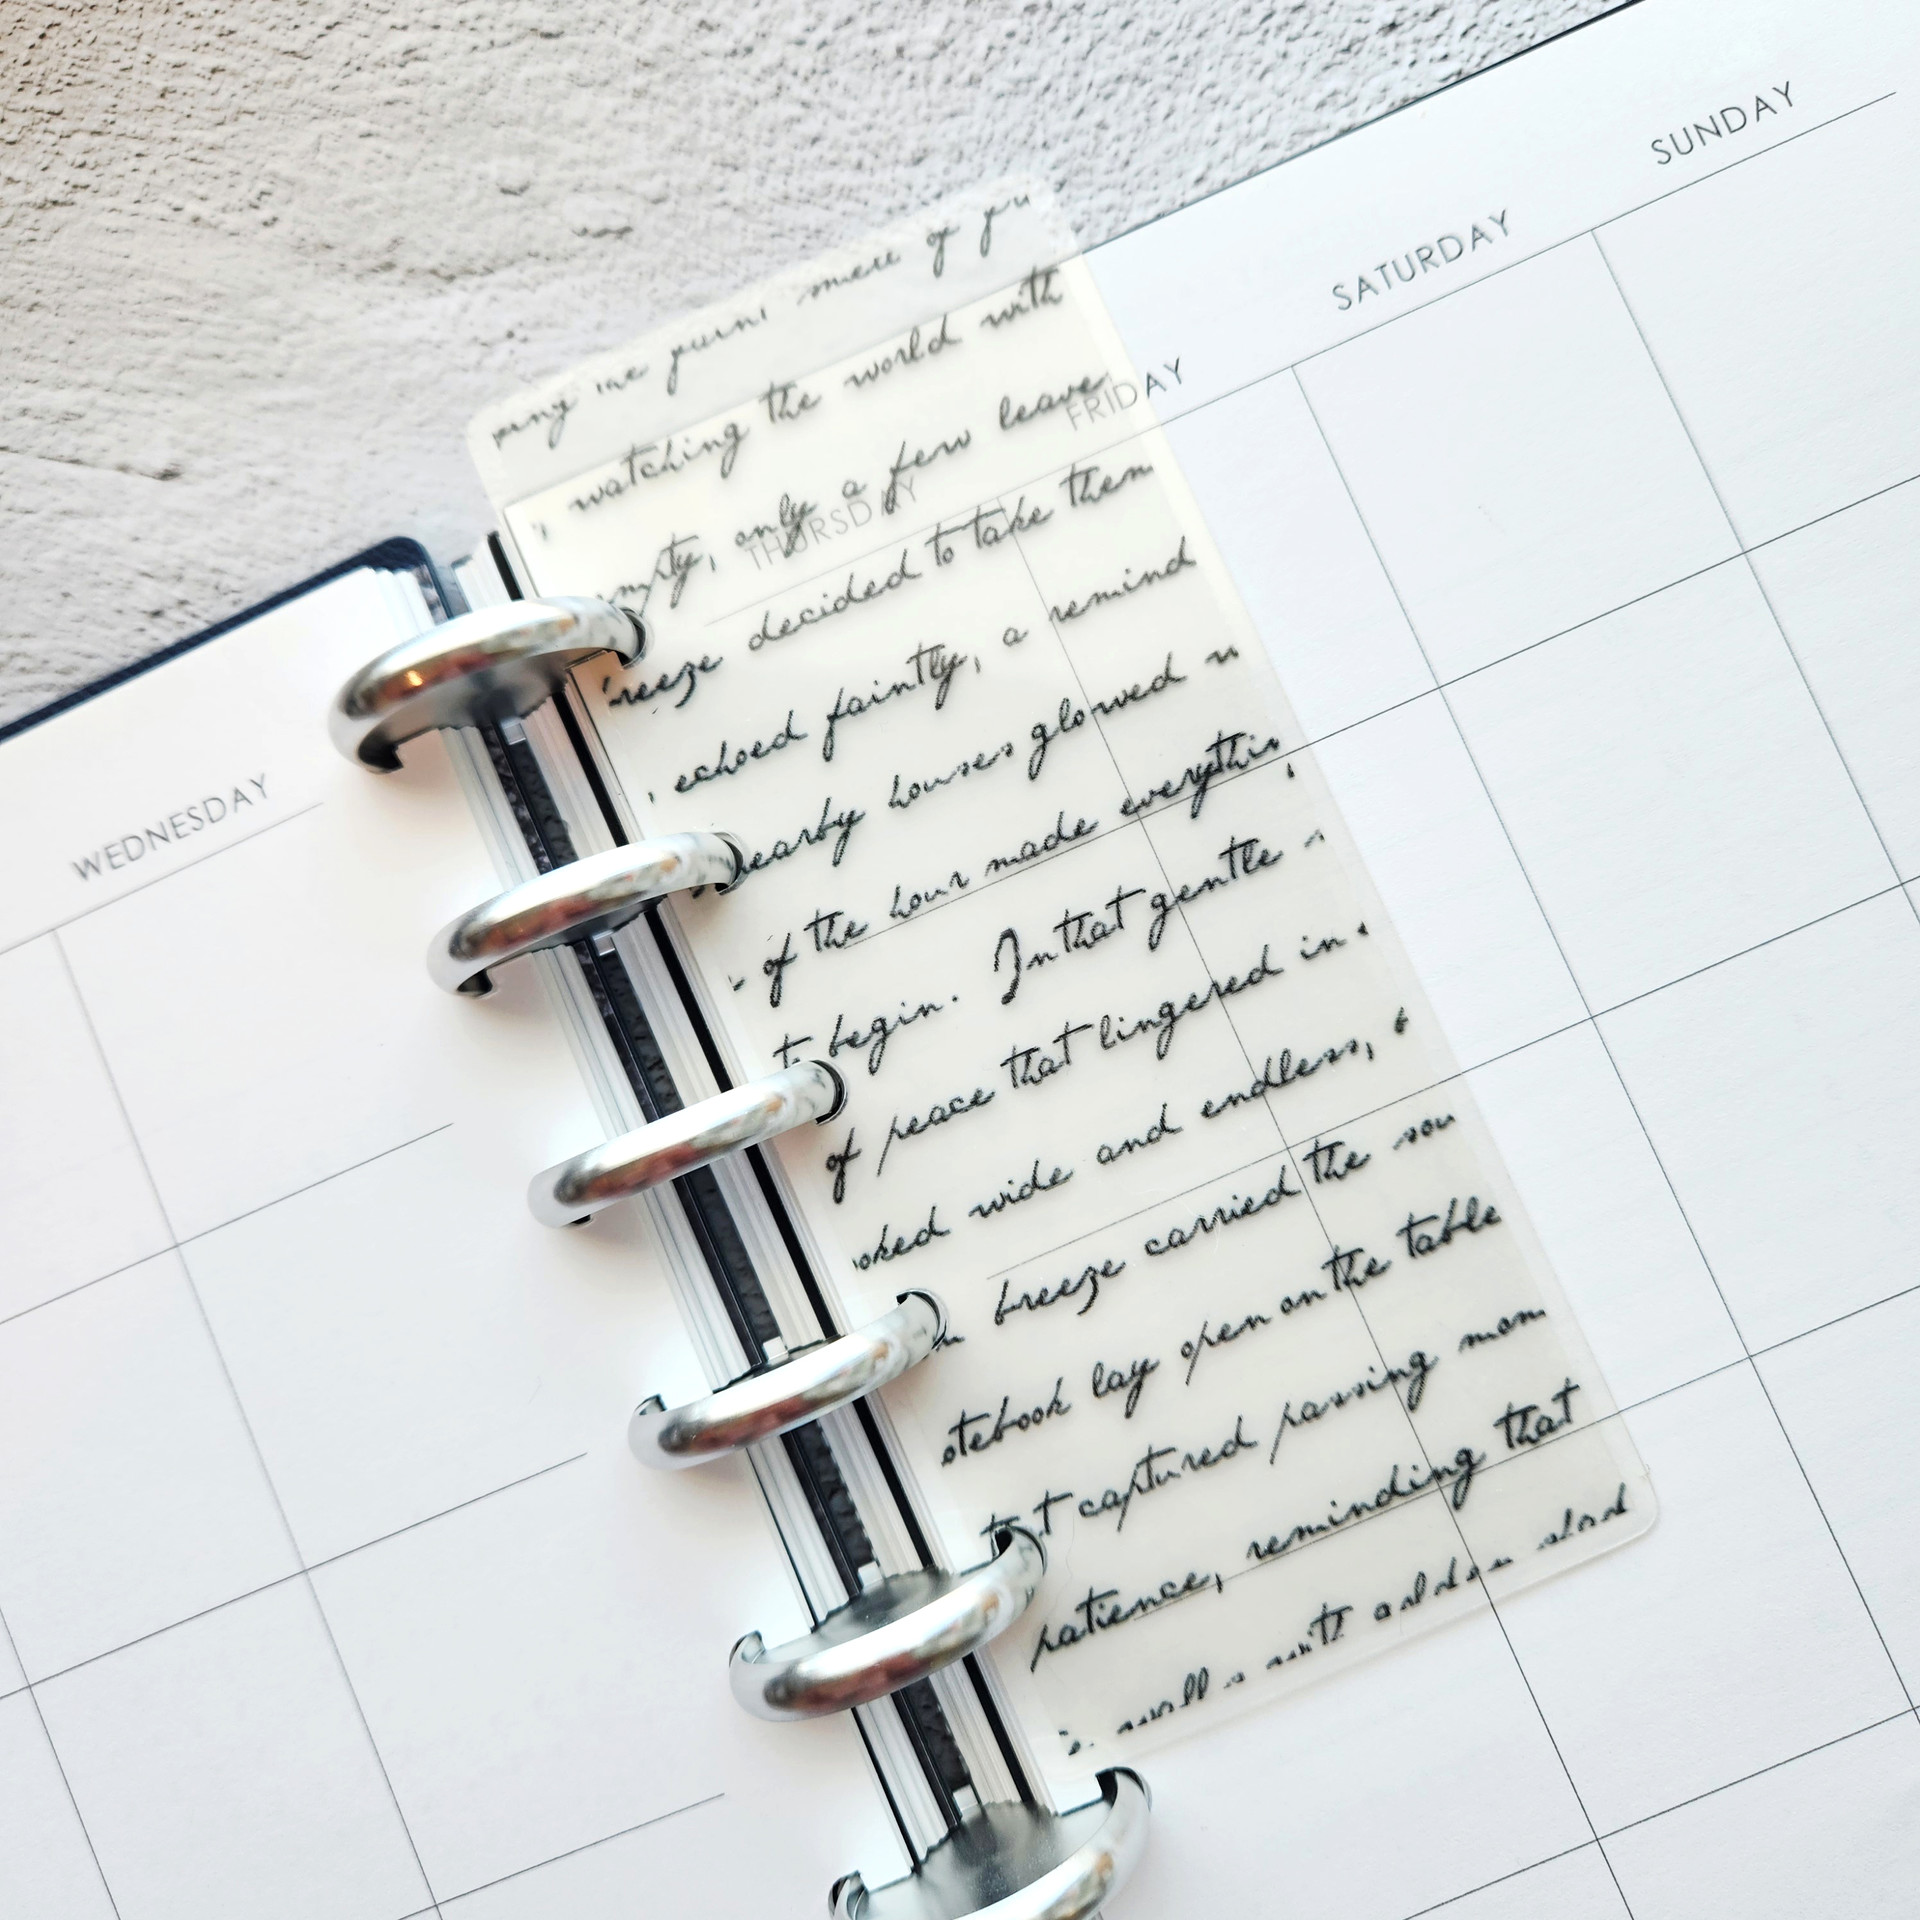 SUNDAY
SATURDAY
FRIDAY
THURSDAY
WEDNESDAY
of you
watching the world with
only a few leave
reeze decided to take them
, echoed faintly, a remind
nearby houses glowed
of the hour made everythin
to begin. In that gentle
of peace that lingered in
oked wide and endless, b
breeze carried the sou
otebook lay open on the table
captured passing mom
patience, reminding that